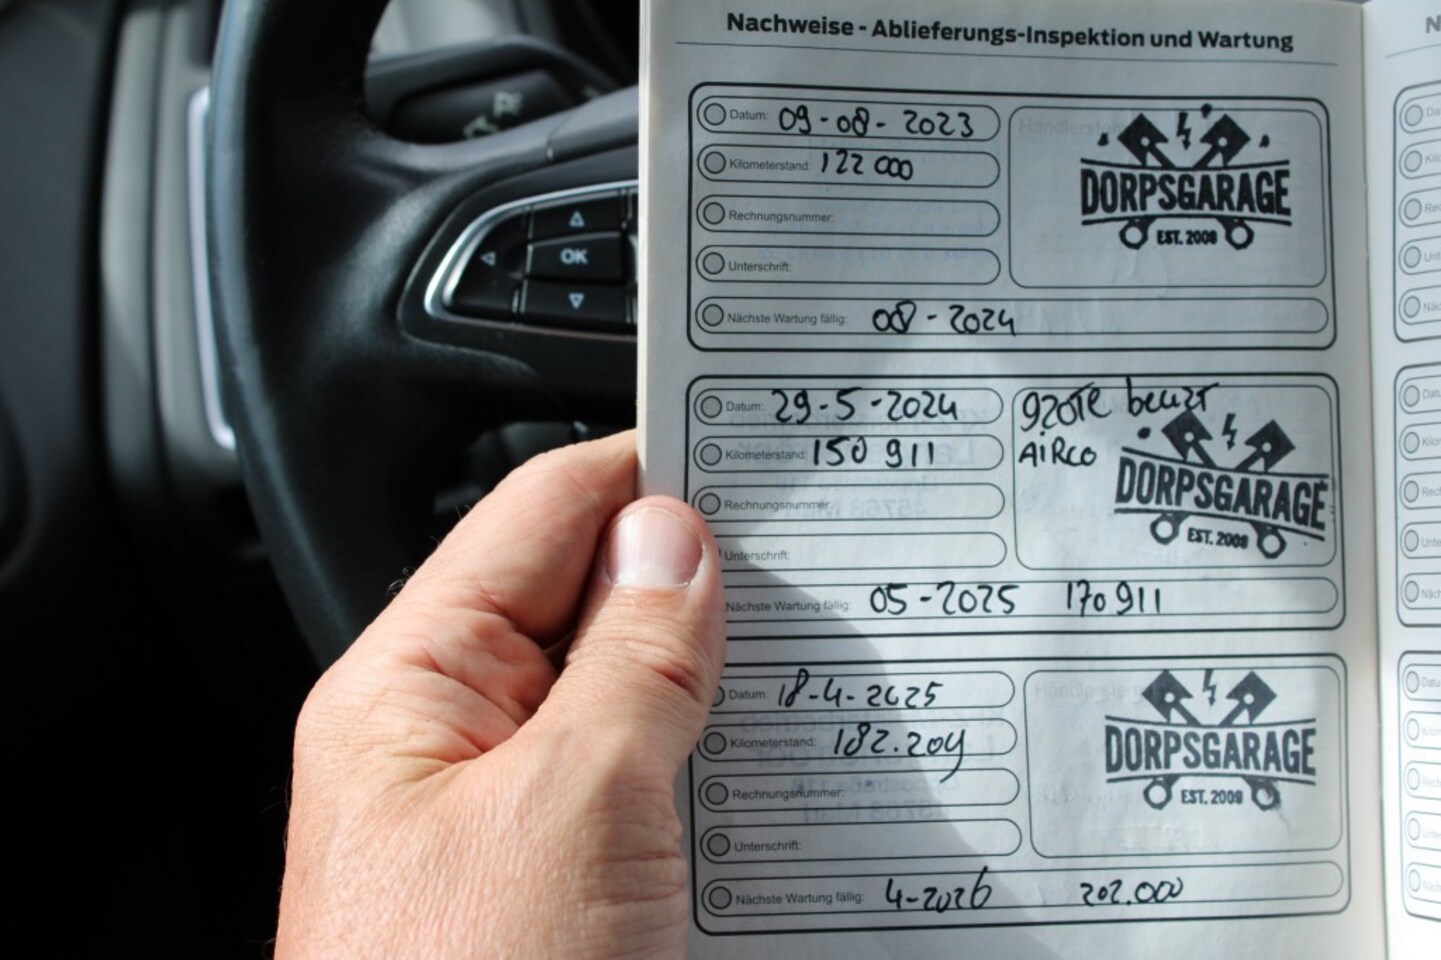 Nachweise - Ablieferungs-Inspektion und Wartung
Datum: 09-08-2023
Kilometerstand: 122 000
Rechnungsnummer:
Unterschrift:
DORPSGARAGE
EST. 2009
Nächste Wartung fällig: 08-2024
Datum: 29-5-2024
Kilometerstand: 150 911
Rechnungsnummer:
Unterschrift:
grote beurt
AIRCO
DORPSGARAGE
EST. 2009
Nächste Wartung fällig: 05-2025 170 911
Datum: 18-4-2025
Kilometerstand: 182.209
Rechnungsnummer:
Unterschrift:
DORPSGARAGE
EST. 2009
Nächste Wartung fällig: 4-2026 202.000
OK